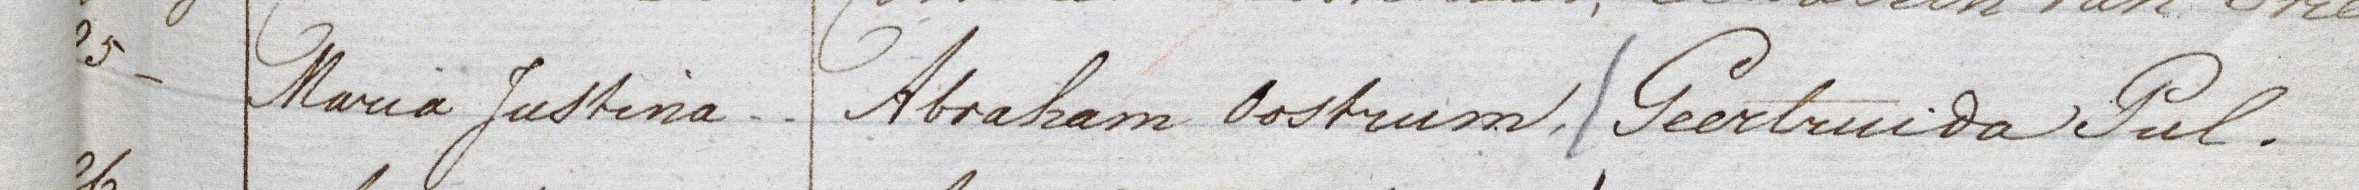 25 - Maria Justina - - Abraham Oostrum, / Geertruida Pul.